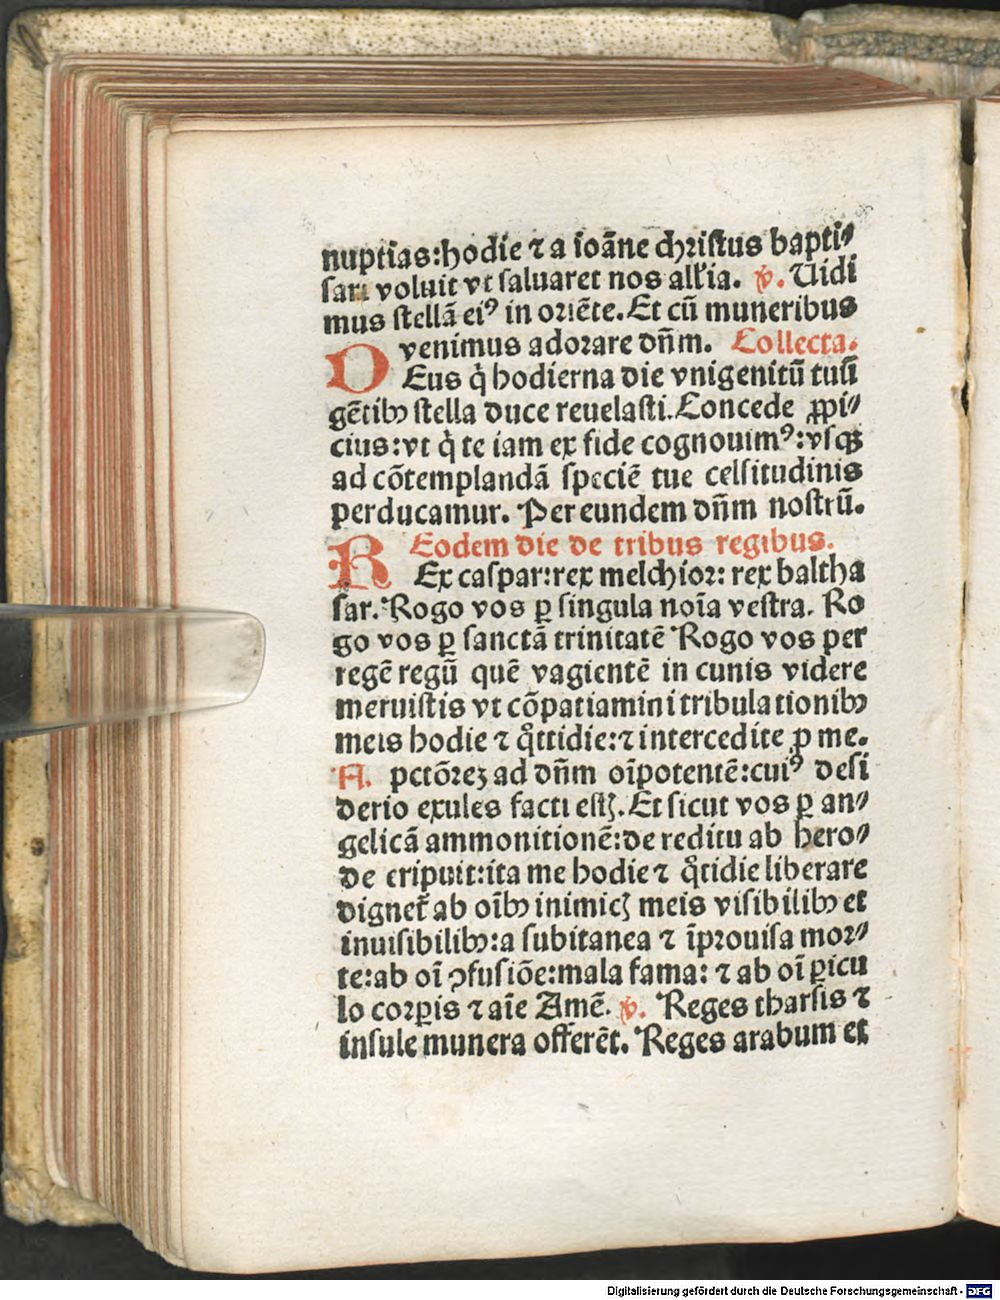 nuptias:hodie ⁊ a ioāne christus bapti⸗
sari voluit vt saluaret nos all'ia. ℣. Uidi
mus stellā eiꝰ in oriēte. Et cū muneribus
venimus adorare dn̄m. Collecta.
DEus q̇ hodierna die vnigenitū tuū
gētibꝫ stella duce reuelasti. Concede ꝓpi⸗
cius: vt q̇ te iam ex fide cognouimꝰ: vsqꝫ
ad cōtemplandā speciē tue celsitudinis
perducamur. Per eundem dn̄m nostrū.
Eodem die de tribus regibus.
REx caspar: rex melchior: rex baltha
sar. Rogo vos ꝑ singula noīa vestra. Ro
go vos ꝑ sanctā trinitatē Rogo vos per
regē regū quē vagientē in cunis videre
meruistis vt cōpatiamini tribulationibꝫ
meis hodie ⁊ qͦttidie: ⁊ intercedite ꝓ me.
A. pctōreꝫ ad dn̄m oīpotentē: cuiꝰ desi
derio exules facti estꝭ. Et sicut vos ꝑ an⸗
gelicā ammonitionē: de reditu ab hero⸗
de eripuit: ita me hodie ⁊ qͦtidie liberare
dignet᷑ ab oībꝫ inimicꝭ meis visibilibꝫ et
inuisibilibꝫ: a subitanea ⁊ īprouisa mor⸗
te: ab oī ꝯfusiōe: mala fama: ⁊ ab oī ꝑicu
lo corꝑis ⁊ aīe Amē. ℣. Reges tharsis ⁊
insule munera offerēt. Reges arabum et
Digitalisierung gefördert durch die Deutsche Forschungsgemeinschaft - DFG